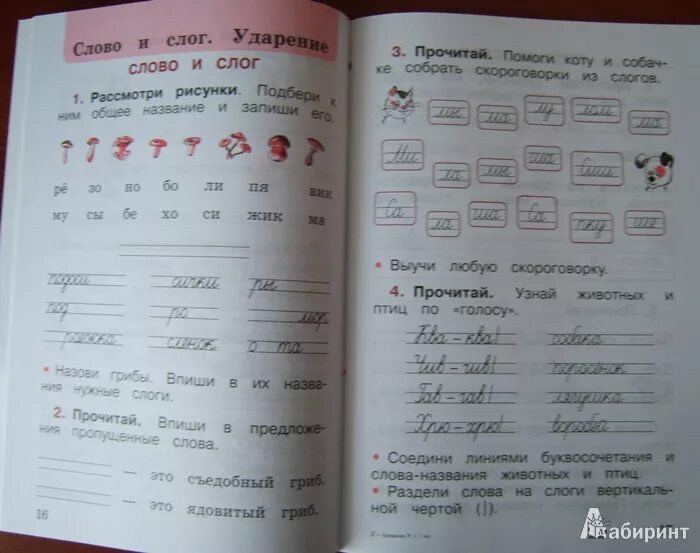 Слово и слог. Ударение
СЛОВО И СЛОГ
1. Рассмотри рисунки. Подбери к
ним общее название и запиши его.
рё зо но бо ли пя вик
му сы бе хо си жик ма
подоси сички ры
под ро мор
роежка слёнок о та
• Назови грибы. Впиши в их назва-
ния нужные слоги.
2. Прочитай. Впиши в предложе-
ния пропущенные слова.
— это съедобный гриб.
— это ядовитый гриб.
16
3. Прочитай. Помоги коту и собач-
ке собрать скороговорки из слогов.
мы ма му ма
Ми ла мы ша
Са ла ша Са пку ше
• Выучи любую скороговорку.
4. Прочитай. Узнай животных и
птиц по «голосу».
Ква – ква! собака
Чив – чив! поросёнок
Гав – гав! лягушка
Хрю – хрю! воробей
• Соедини линиями буквосочетания и
слова-названия животных и птиц.
• Раздели слова на слоги вертикаль-
ной чертой (|).
Лабиринт